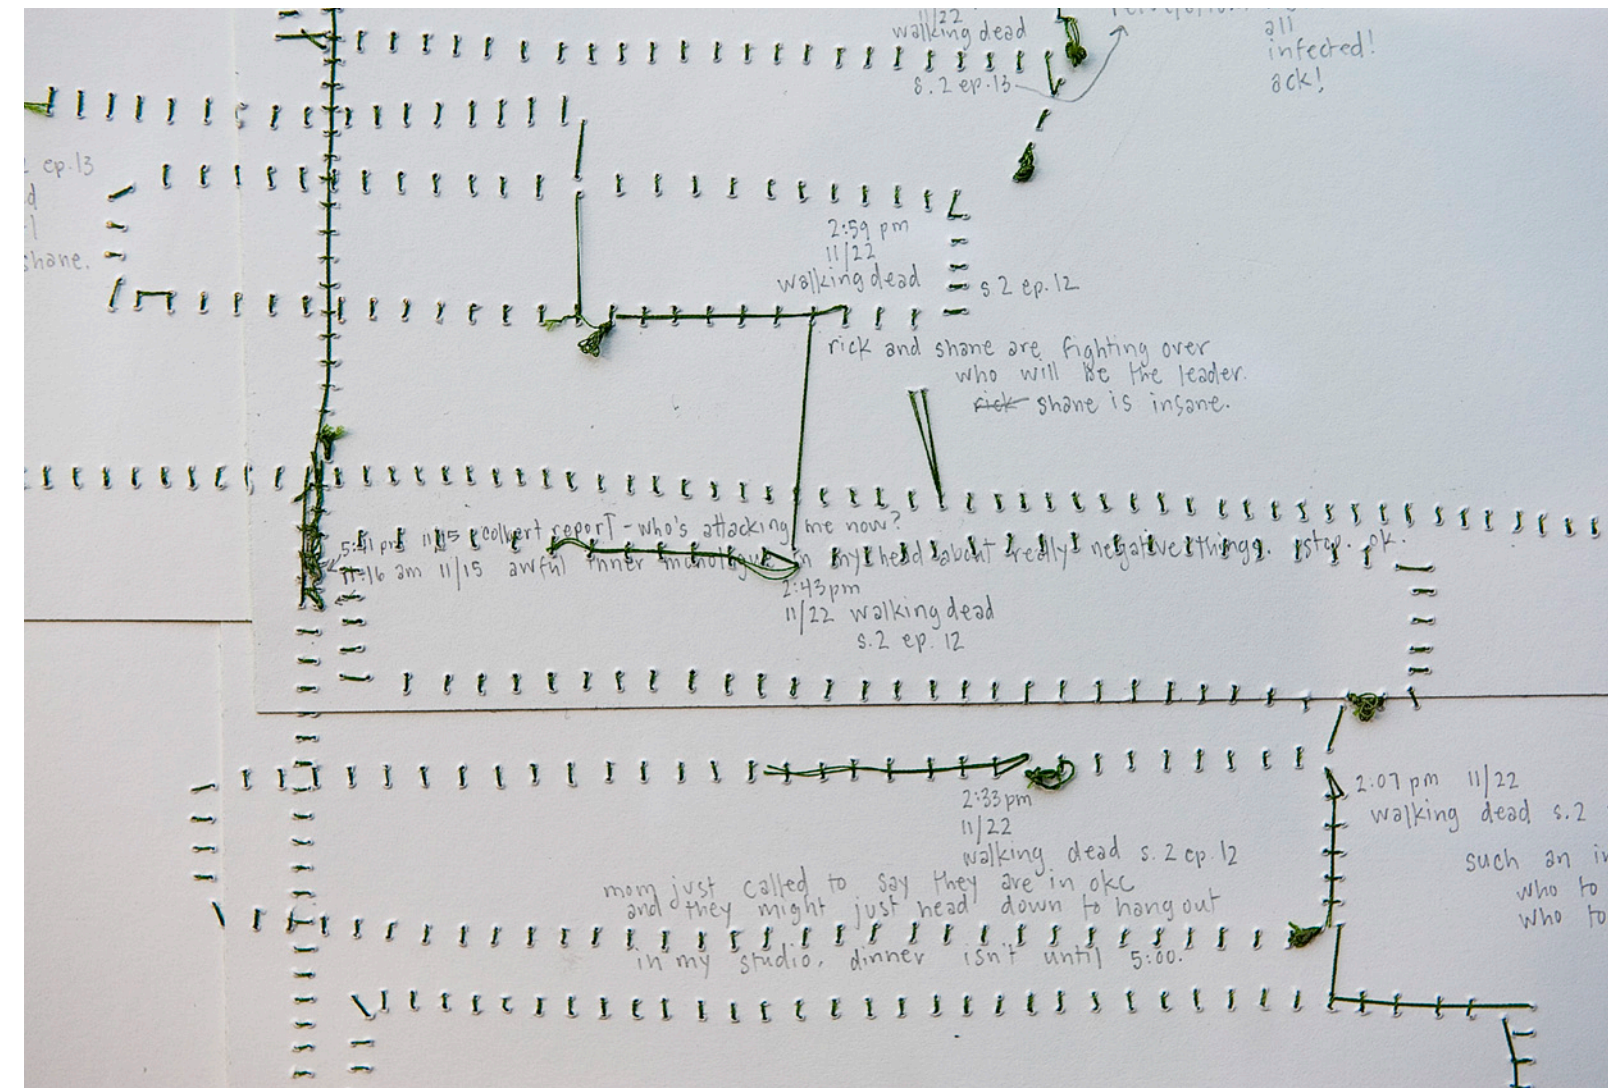 11/22
walking dead
s.2 ep.13
all
infected!
ack!
ep.13
shane.
2:59 pm
11/22
walking dead
s 2 ep. 12
rick and shane are fighting over
who will be the leader.
rick shane is insane.
5:41 pm 11/15 colbert report - who's attacking me now?
11:16 am 11/15 awful inner monologue in my head about really negative things. stop. ok.
2:43pm
11/22 walking dead
s.2 ep. 12
2:33pm
11/22
walking dead s. 2 ep. 12
mom just called to say they are in okc
and they might just head down to hang out
in my studio. dinner isn't until 5:00.
2:07 pm 11/22
walking dead s.2
such an
who to
who to